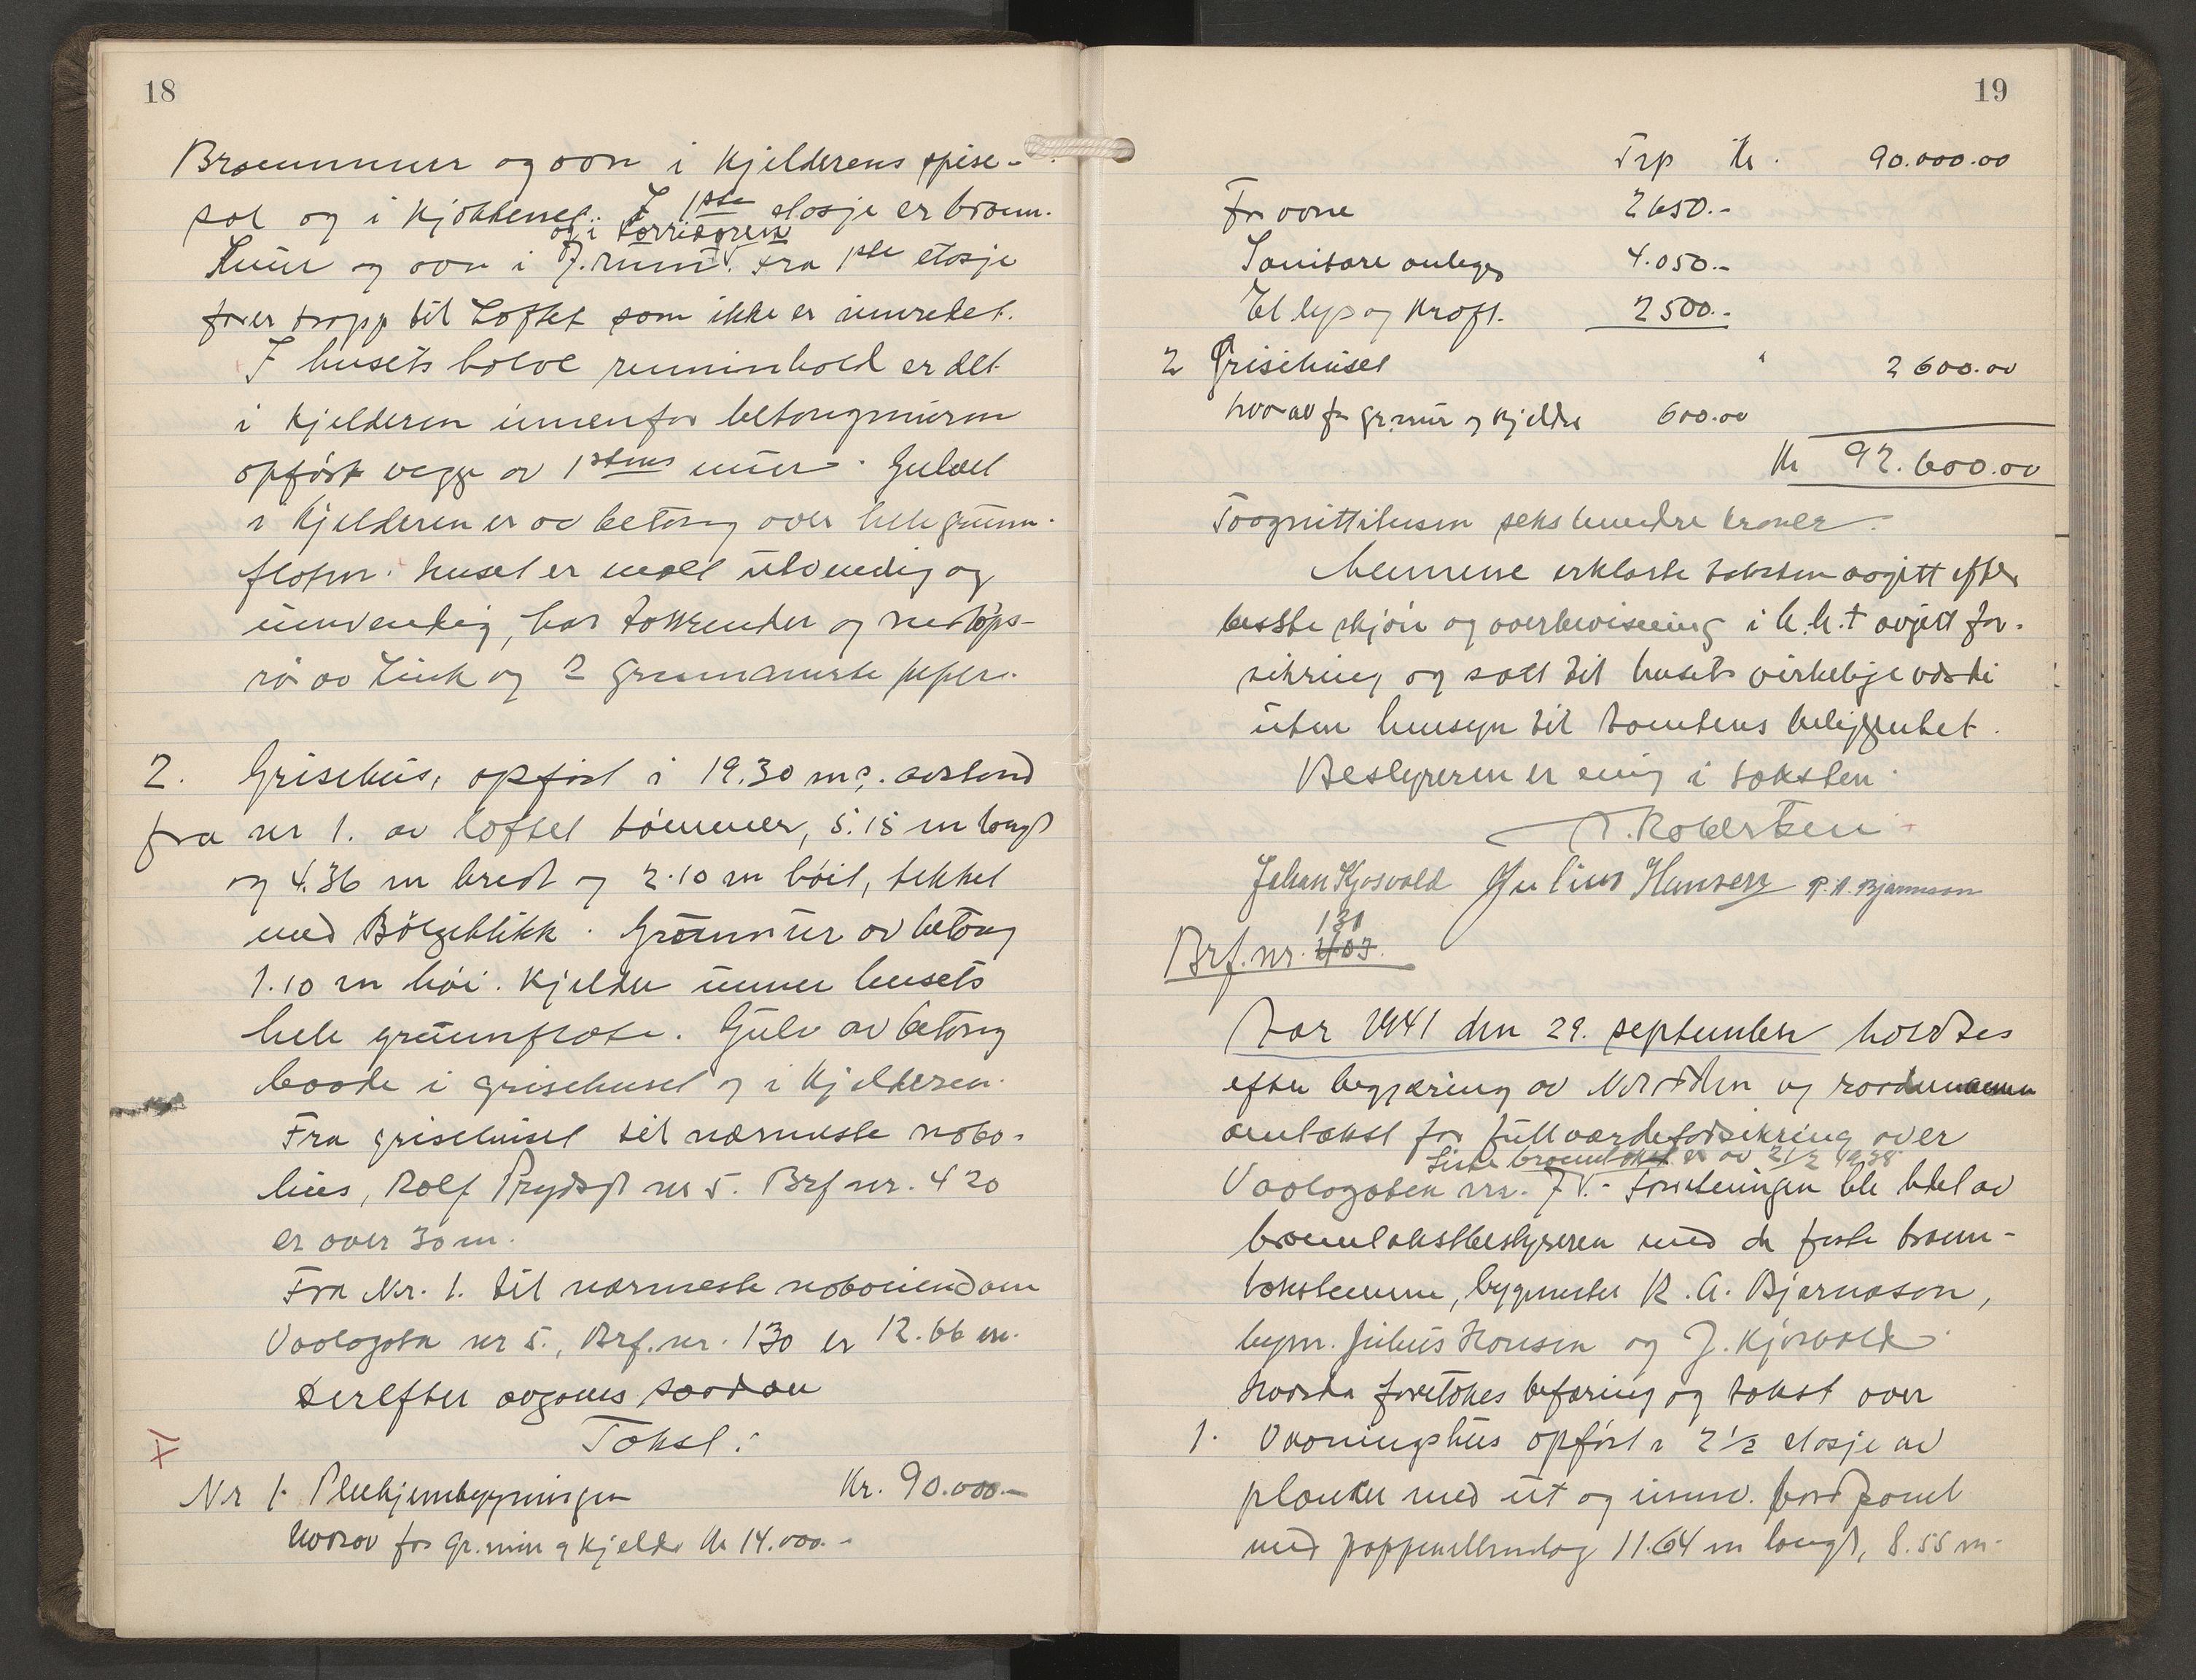 18
Brannmur og ovn i Kjelderens spise-
sal og i Kjökkenet. I 1ste etasje er brann-
og i Korridoren
mur og ovn i 7. rum. Fra 1ste etasje
fører trapp til Loftet som ikke er innredet.
I husets halve ruminhold er det
i Kjelderen innenfor betongmuren
opført vegge av 1 stens mur. Gulvet
i Kjelderen er av betong over hele grunn-
flaten. Huset er malt utvendig og
innvendig, har takrender og nedlöps-
rör av Zink og 2 grunnmurte piper.
2. Grisehus, opført i 19.30 m. avstand
fra nr 1. av laftet tömmer, 5.15 m langt
og 4.36 m bredt og 2.10 m höit, tekket
med Bölgeblikk. Grunnmur av betong
1.10 m höi. Kjelder under husets
hele grunnflate. Gulv av betong
baade i grisehuset og i Kjelderen.
Fra grisehuset til nærmeste nabo-
hus, Rolf Prydsgt nr 5. Brf nr. 420
er over 30 m.
Fra Nr. 1. til nærmeste naboeiendom
Vaolagata nr 5., Brf. nr. 130 er 12.66 m.
Derefter avgaves saadan
Takst:
X
Nr 1. Pleiehjembygningen Kr. 90.000.-
Hvorav for gr.mur og Kjelder Kr 14.000.-
19
Trp Kr. 90.000.00
For ovne 2650.-
Sanitære anlegg 4.050.-
El lys og Kraft. 2500.-
2 Grisehuset " 2600.00
hvorav for gr.mur og Kjelder 600.00
Kr 92.600.00
Toognittitusen seks hundre kroner.
Mennene erklærte taksten avgitt efter
beste skjön og overbevisning i h.h.t avgitt for-
sikring og satt til husets virkelige værdi
uten hensyn til tomtens beliggenhet.
Bestyreren er enig i taksten.
Robertsen
Johan Kjosvold Julius Hansen R. A. Bjarnason
130
Brf. nr. 403.
Aar 1941 den 29. september holdtes
efter begjæring av og
omtakst for fullværdeforsikring over
Siste branntakst er av 21/2 1938
Vaolagaten nr. 7 V.- Forretningen ble ledet av
branntakstbestyreren med de faste brann-
takstmenn, bygmester R. A. Bjarnason,
bygm. Julius Hansen og J. Kjosvold
Hvorda foretokes befaring og takst over
1. Vaaningshus opført i 2 1/2 etasje av
planker med ut og innv. bord panel
med pappmellemlag 11.64 m langt, 8.55 m